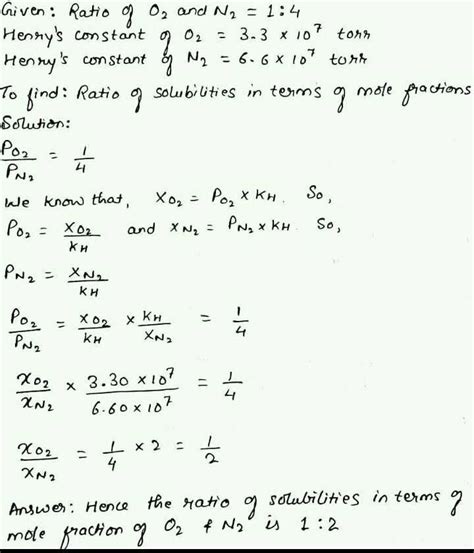 Given: Ratio of O2 and N2 = 1:4
Henry's constant of O2 = 3.3 × 10^7 torr
Henry's constant of N2 = 6.6 × 10^7 torr
To find: Ratio of solubilities in terms of mole fractions
Solution:
PO2/PN2 = 1/4
We know that, XO2 = PO2 × KH. So,
PO2 = XO2/KH and XN2 = PN2 × KH. So,
PN2 = XN2/KH
PO2/PN2 = XO2/KH × KH/XN2 = 1/4
XO2/XN2 × 3.30 × 10^7/6.60 × 10^7 = 1/4
XO2/XN2 = 1/4 × 2 = 1/2
Answer: Hence the ratio of solubilities in terms of
mole fraction of O2 & N2 is 1:2